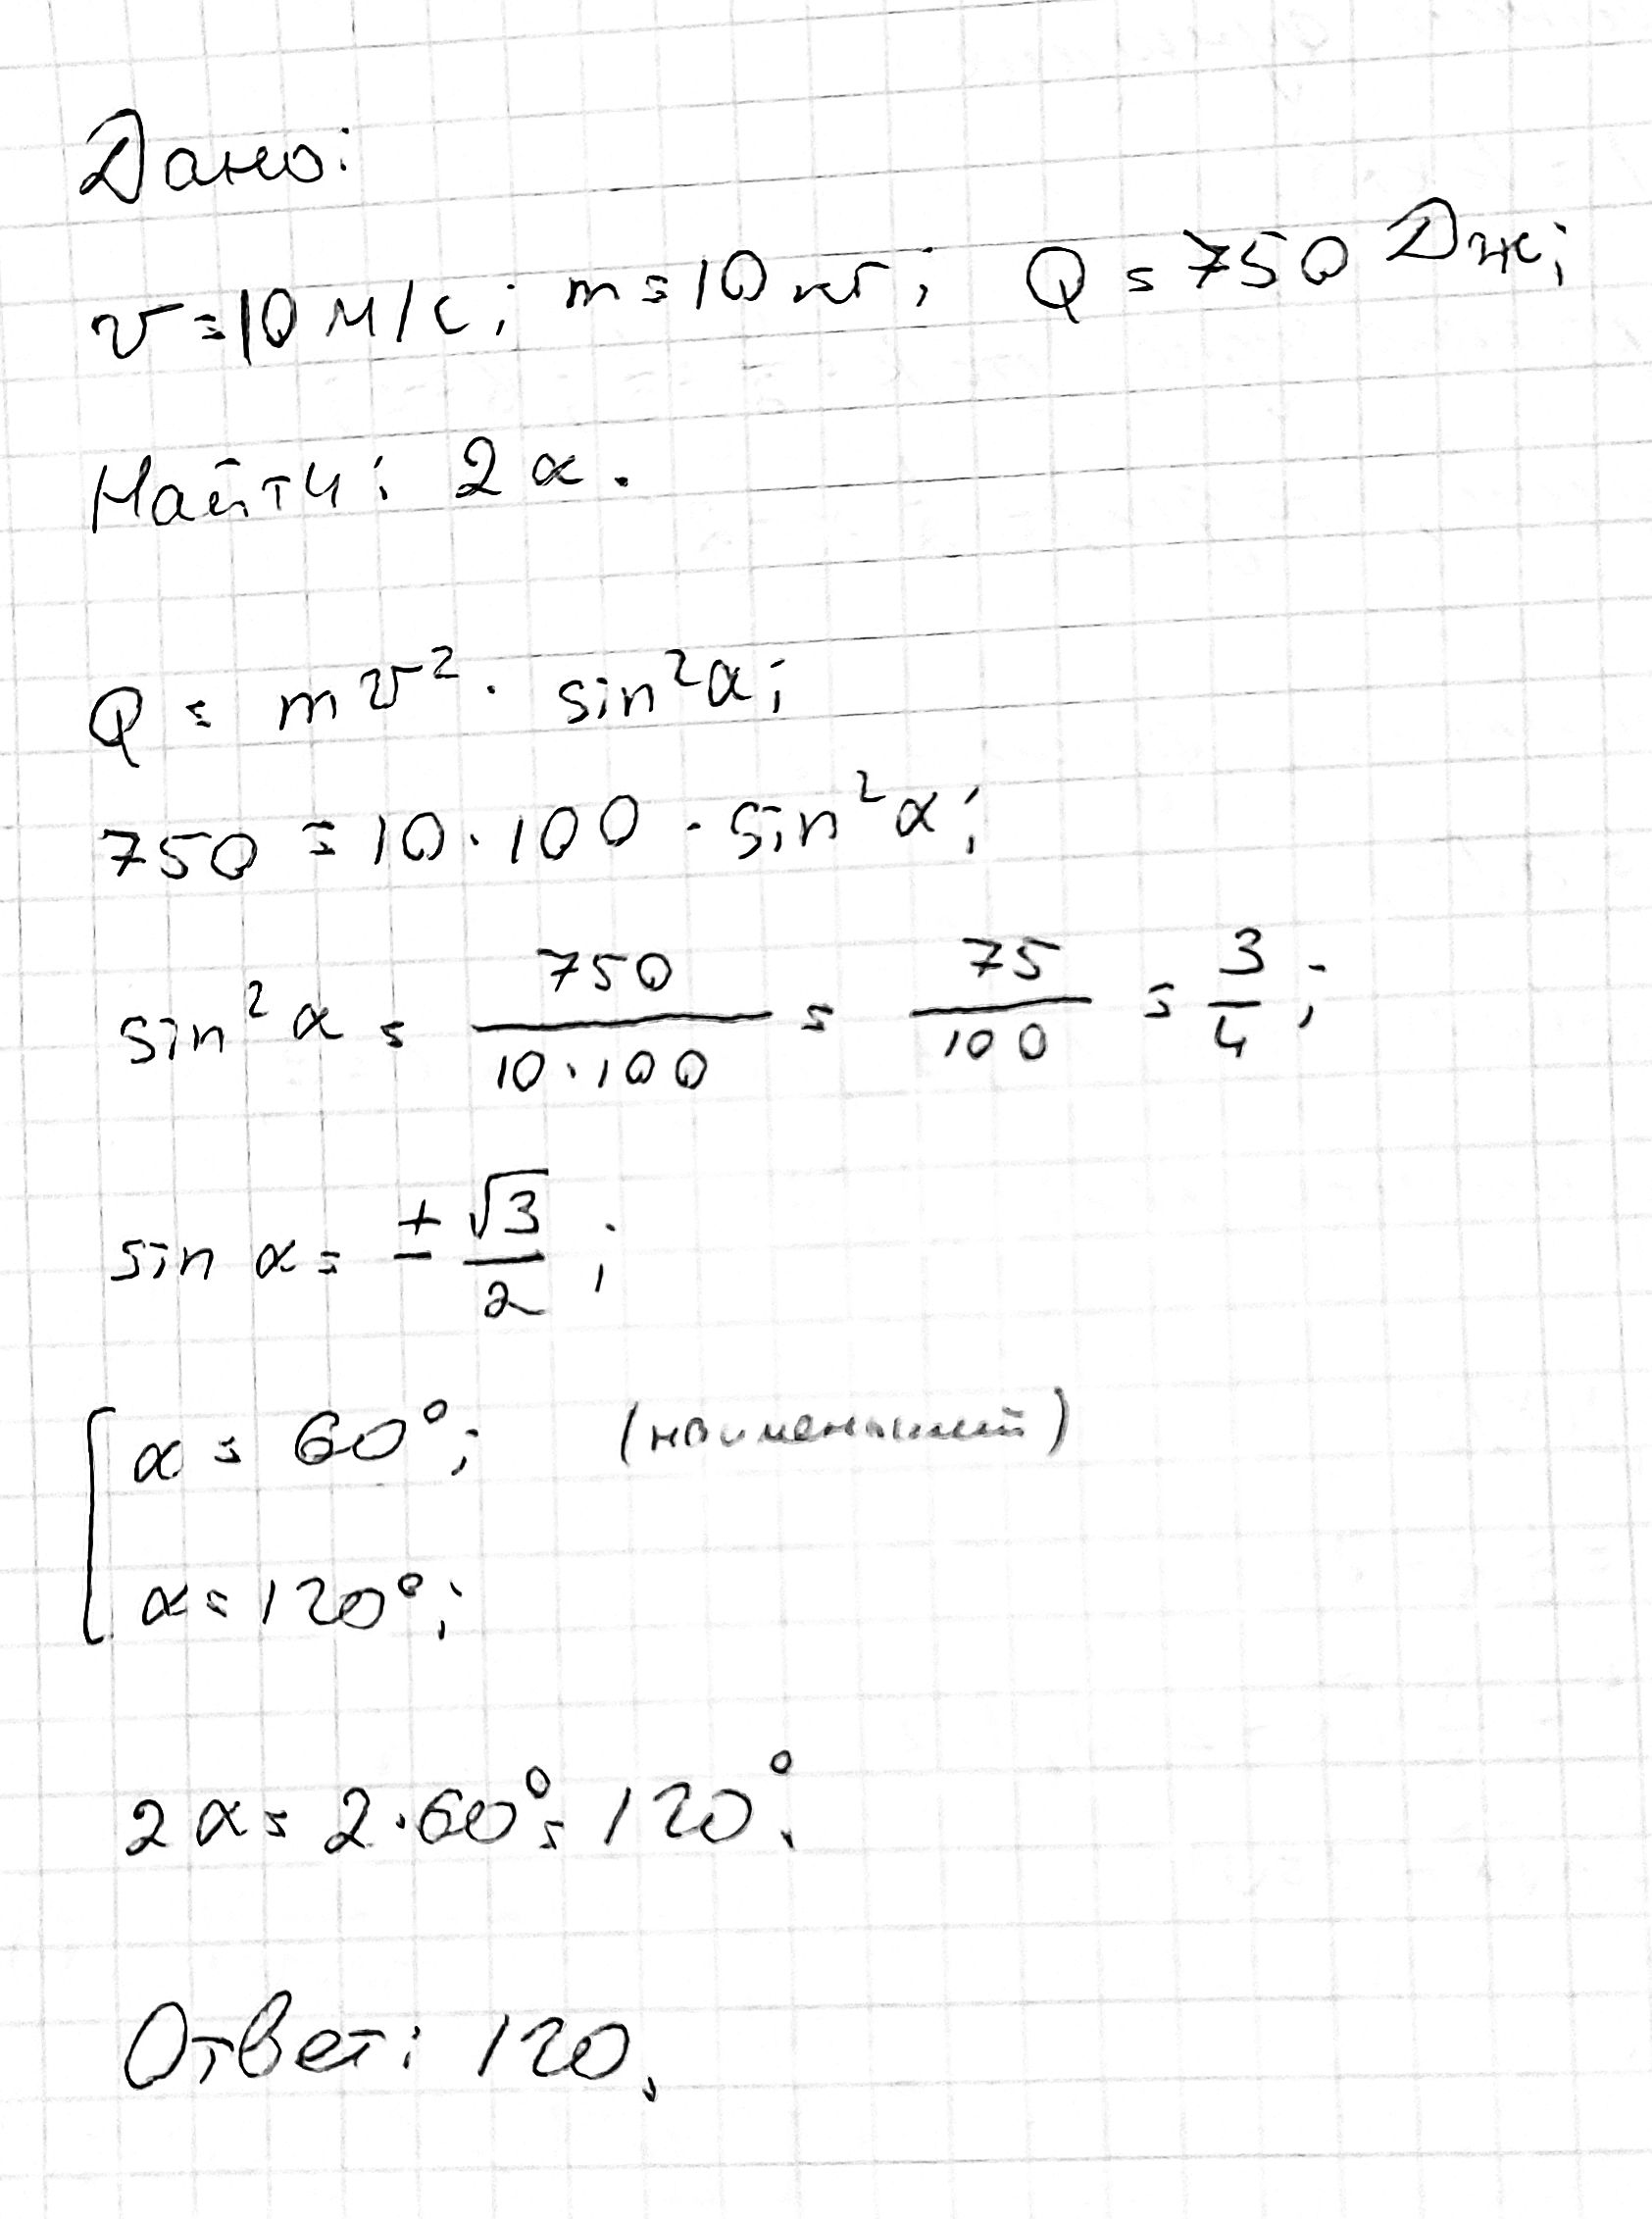 Дано:
v = 10 м/с; m = 10 кг; Q = 750 Дж;
Найти: 2α.
Q = mv² · sin²α;
750 = 10 · 100 · sin²α;
sin²α = 750/(10·100) = 75/100 = 3/4;
sin α = ± √3/2;
[ α = 60°; (наименьший)
α = 120°;
2α = 2·60° = 120°.
Ответ: 120.